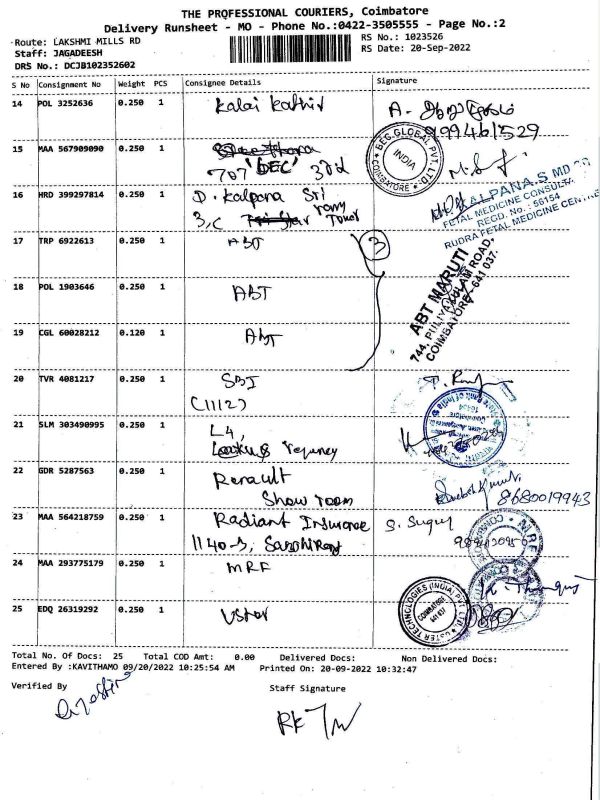 THE PROFESSIONAL COURIERS, Coimbatore
Delivery Runsheet - MO - Phone No.:0422-3505555 - Page No.:2
Route: LAKSHMI MILLS RD
RS No.: 1023526
Staff: JAGADEESH
RS Date: 20-Sep-2022
DRS No.: DCJB102352602
S No Consignment No Weight PCS Consignee Details Signature
14 POL 3252636 0.250 1 Kalai Kathir A.
15 MAA 567909090 0.250 1
707 'DEC' 3rd
BEC GLOBAL PVT. LTD. COIMBATORE INDIA
16 HRD 399297814 0.250 1 D. Kalpana Sri
3, C Tower
KALPANA.S MD
FETAL MEDICINE CONSULTA
REGD. NO.: 56154
RUDRA FETAL MEDICINE CENTRE
17 TRP 6922613 0.250 1 ABT 3
18 POL 1903646 0.250 1 ABT
19 CGL 60028212 0.120 1 ABT
ABT MARUTI
744, PULIYAKULAM ROAD,
COIMBATORE - 641 037.
20 TVR 4081217 0.250 1 SBI
(1112)
21 SLM 303490995 0.250 1 L4,
Regency
22 GDR 5287563 0.250 1 Renault
Show room
8680019943
23 MAA 564218759 0.250 1 Radiant Insurance S. Sugu
1140-3,
24 MAA 293775179 0.250 1 MRF
25 EDQ 26319292 0.250 1 Ustar
USTER TECHNOLOGIES (INDIA) PVT. LTD. COIMBATORE 641 037
Total No. Of Docs: 25 Total COD Amt: 0.00 Delivered Docs: Non Delivered Docs:
Entered By :KAVITHAMO 09/20/2022 10:25:54 AM Printed On: 20-09-2022 10:32:47
Verified By Staff Signature